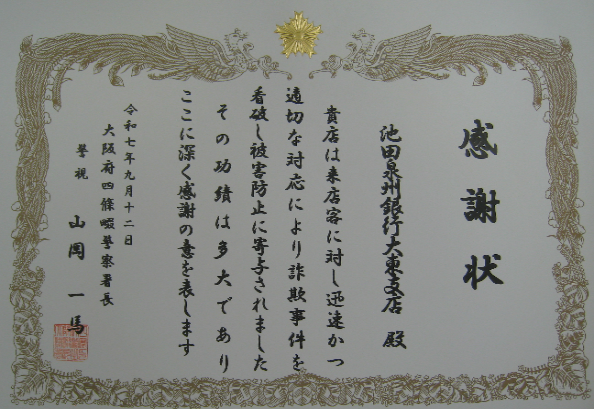 感謝状
池田泉州銀行大東支店 殿
貴店は来店客に対し迅速かつ
適切な対応により詐欺事件を
看破し被害防止に寄与されました
その功績は多大であり
ここに深く感謝の意を表します
令和七年九月十二日
大阪府四條畷警察署長
警視 山岡一馬